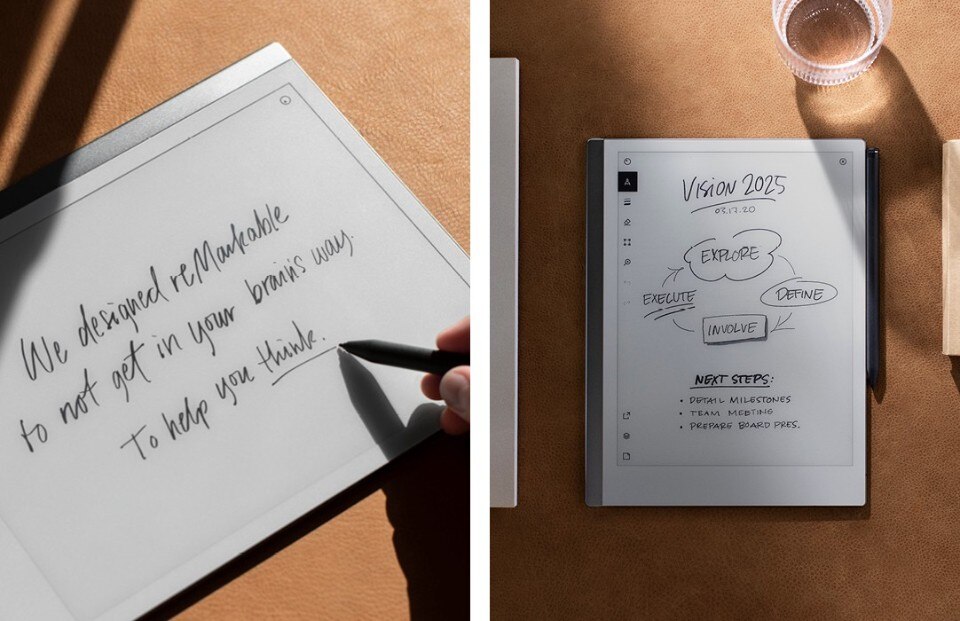 We designed reMarkable
to not get in your brain's way.
To help you think.
VISION 2025
03.17.20
EXPLORE
EXECUTE
DEFINE
INVOLVE
NEXT STEPS:
• DETAIL MILESTONES
• TEAM MEETING
• PREPARE BOARD PRES.